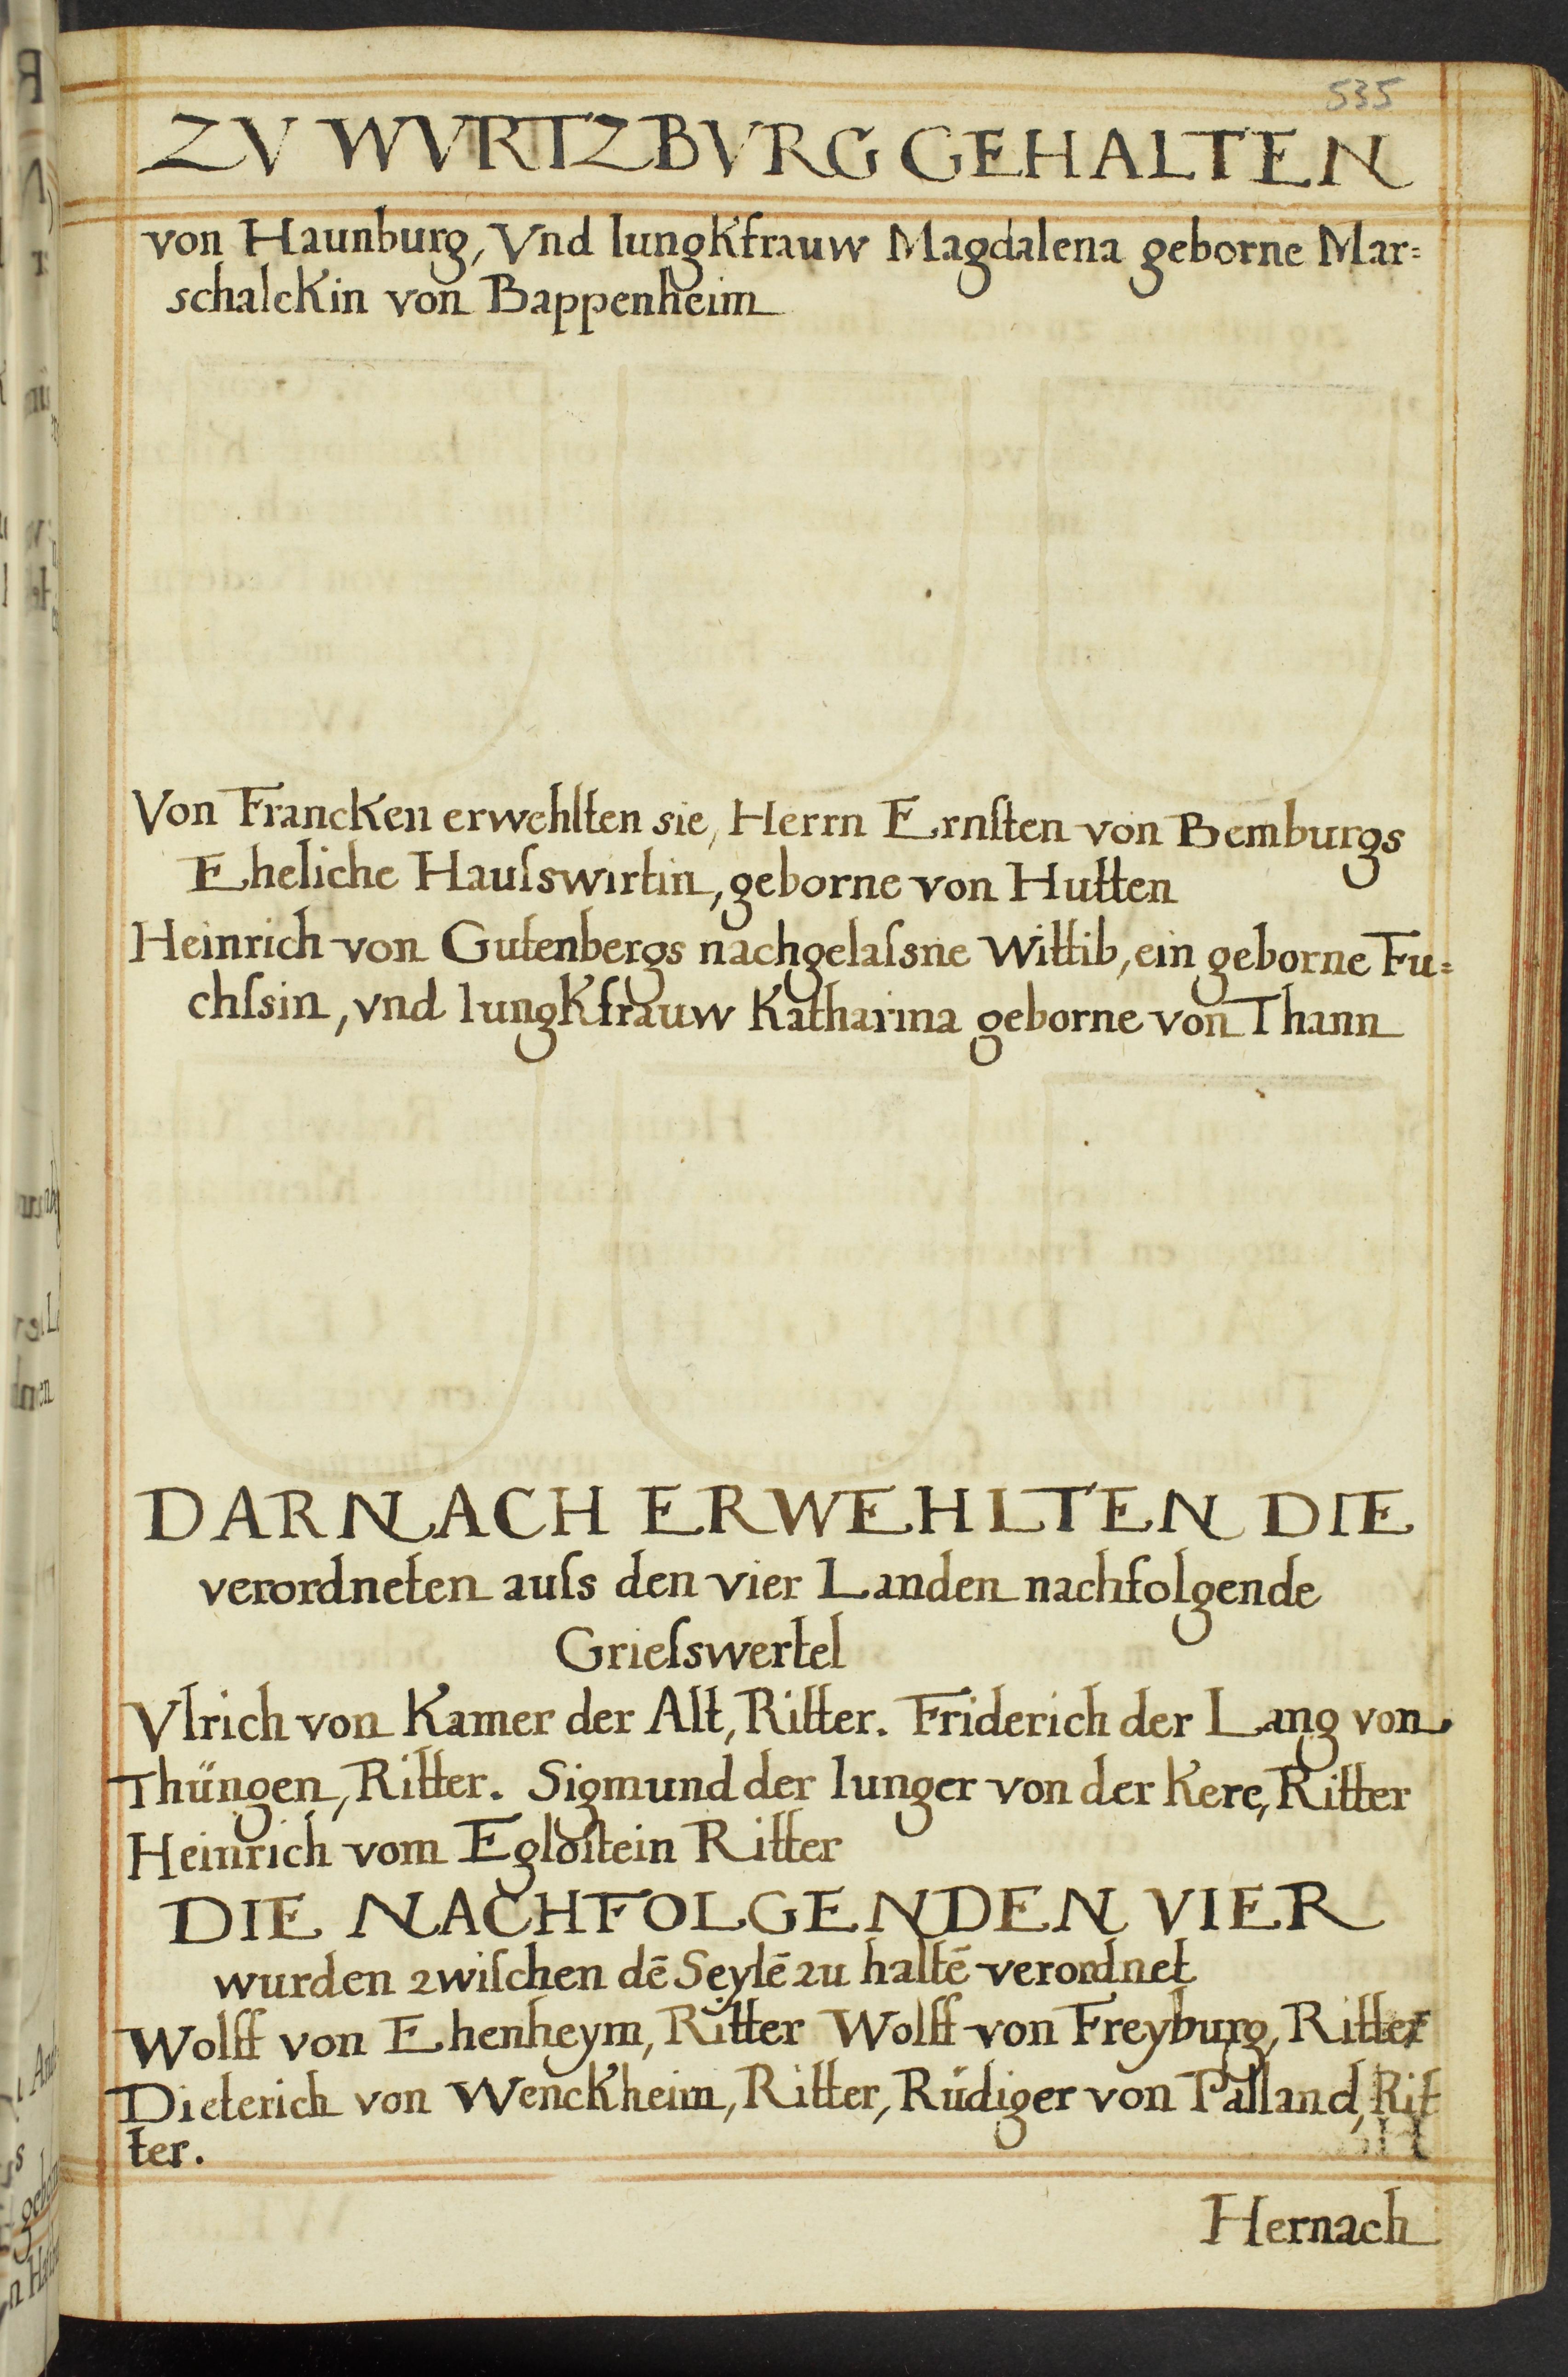 535
ZV WVRTZBVRG GEHALTEN
von Haunburg, Vnd Iungkfrauw Magdalena geborne Mar=
schalckin von Bappenheim
Von Francken erwehlten sie, Herrn Ernſten von Bemburgs
Eheliche Hauſswirtin, geborne von Hutten
Heinrich von Gutenbergs nachgelaſsne Wittib, ein geborne Fu=
chſsin, vnd Iungkfrauw Katharina geborne von Thann
DARNACH ERWEHLTEN DIE
verordneten auſs den vier Landen nachfolgende
Grieſswertel
Vlrich von Kamer der Alt, Ritter. Friderich der Lang von
Thüngen, Ritter. Sigmund der Iunger von der Kere, Ritter
Heinrich vom Egloſtein Ritter
DIE NACHFOLGENDEN VIER
wurden zwiſchen dē Seylē zu haltē verordnet
Wolff von Ehenheym, Ritter Wolff von Freyburg, Ritter
Dieterich von Wenckheim, Ritter, Rüdiger von Palland, Rit
ter.
Hernach